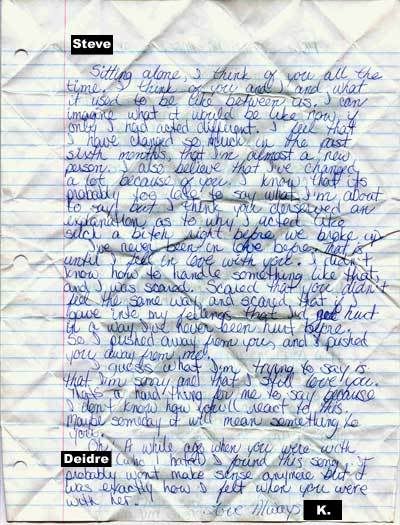 Steve
Sitting alone, I think of you all the
time. I think of you and I and what
it used to be like between us. I can
imagine what it would be like now, if
only I had acted different. I feel that
I have changed so much in the past
sixth months, that I'm almost a new
person. I also believe that I've changed
a lot because of you. I know that its
probably too late to say what I'm about
to say, but I think you derserved an
explination as to why I acted like
such a bitch right before we broke up.
I've never been in love before. That is
until I fell in love with you. I didn't
know how to handle something like that,
and I was scared. Scared that you didn't
feel the same way and scared that if I
gave into my feelings that I'd get hurt
in a way I've never been hurt before.
So I pushed away from you, and I pushed
you away from me.
I guess what I'm trying to say is
that I'm sorry and that I still love you.
Thats a hard thing for me to say because
I don't know how you will react to this.
Maybe someday it will mean something to
you.
Oh! A while ago when you were with
Deidre (who I hated) I found this song. it
probably won't make sense anymore but it
was exactly how I felt when you were
with her.
Love Always K.